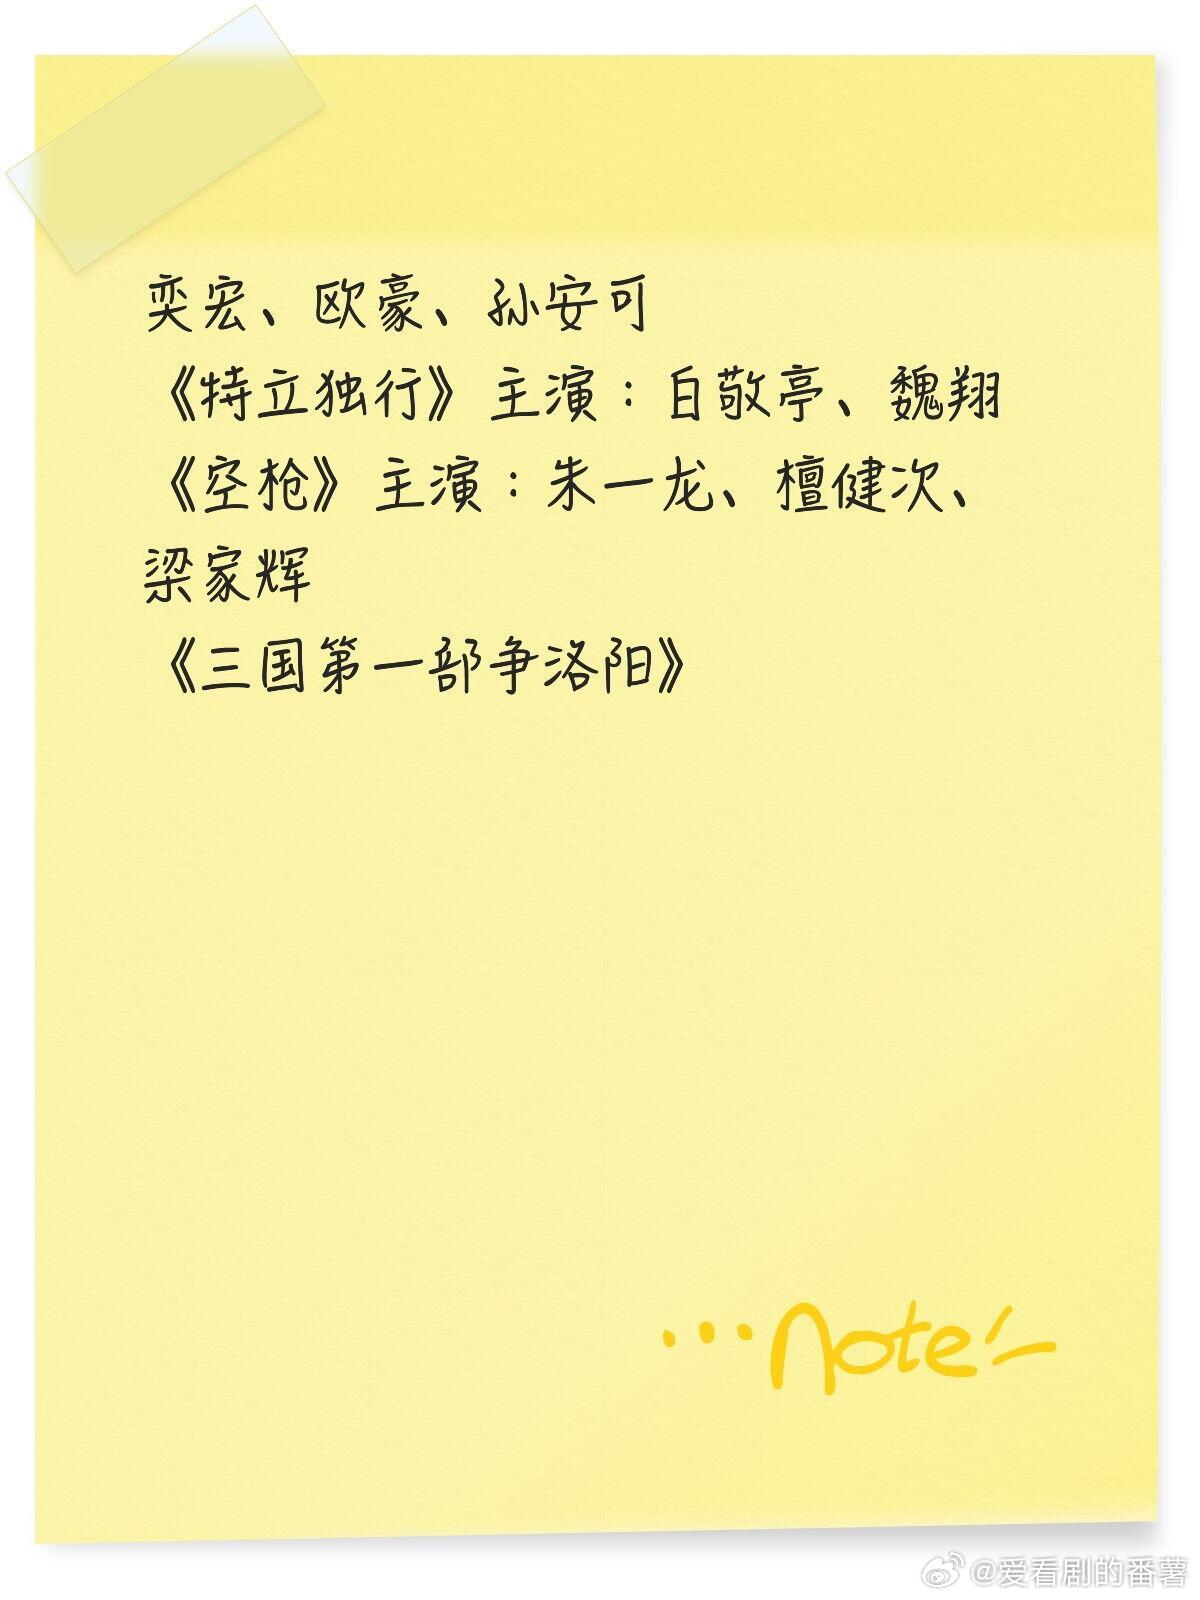 奕宏、欧豪、孙安可
《特立独行》主演：白敬亭、魏翔
《空枪》主演：朱一龙、檀健次、
梁家辉
《三国第一部争洛阳》
...note
@爱看剧的番薯